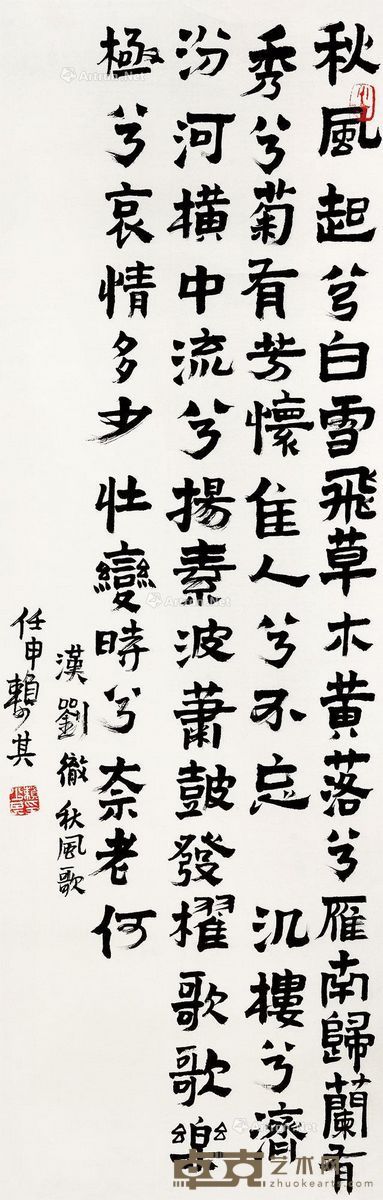 秋風起兮白雪飛草木黄落兮雁南歸蘭有
秀兮菊有芳懷佳人兮不忘 汎樓兮濟
汾河橫中流兮揚素波蕭鼓發櫂歌歌樂
極兮哀情多少壯變時兮奈老何
漢劉徹秋風歌
任申賴少其
卓克艺术网
zhuokearts.com
Artron.Net